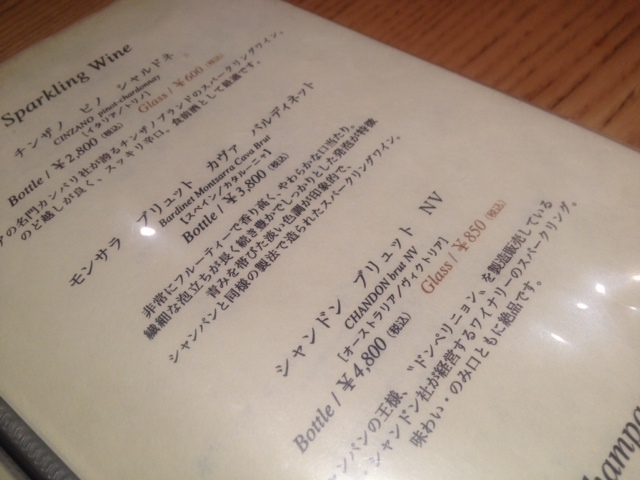 Sparkling Wine
チンザノ ピノ シャルドネ
CINZANO pinot-chardonnay
[イタリア/トリノ]
Bottle / ¥2,800 (税込) Glass / ¥600 (税込)
の名門カンパリ社が誇るチンザノブランドのスパークリングワイン。
のど越しが良く、スッキリ辛口。食前酒として最適です。
モンサラ ブリュット カヴァ バルディネット
Bardinet Montsarra Cava Brut
[スペイン/カタルーニャ]
Bottle / ¥3,800 (税込)
非常にフルーティーで香り高く、やわらかな口当たり。
繊細な泡立ちが長く続き静かでしっかりとした発泡が特徴
青みを帯びた淡い色調が印象的で、
シャンパンと同様の製法で造られたスパークリングワイン。
シャンドン ブリュット NV
CHANDON brut NV
[オーストラリア/ヴィクトリア]
Bottle / ¥4,800 (税込) Glass / ¥850 (税込)
ンパンの王様、〝ドンペリニョン〟を製造販売している
シャンドン社が経営するワイナリーのスパークリング。
味わい・のみ口ともに絶品です。
hampa